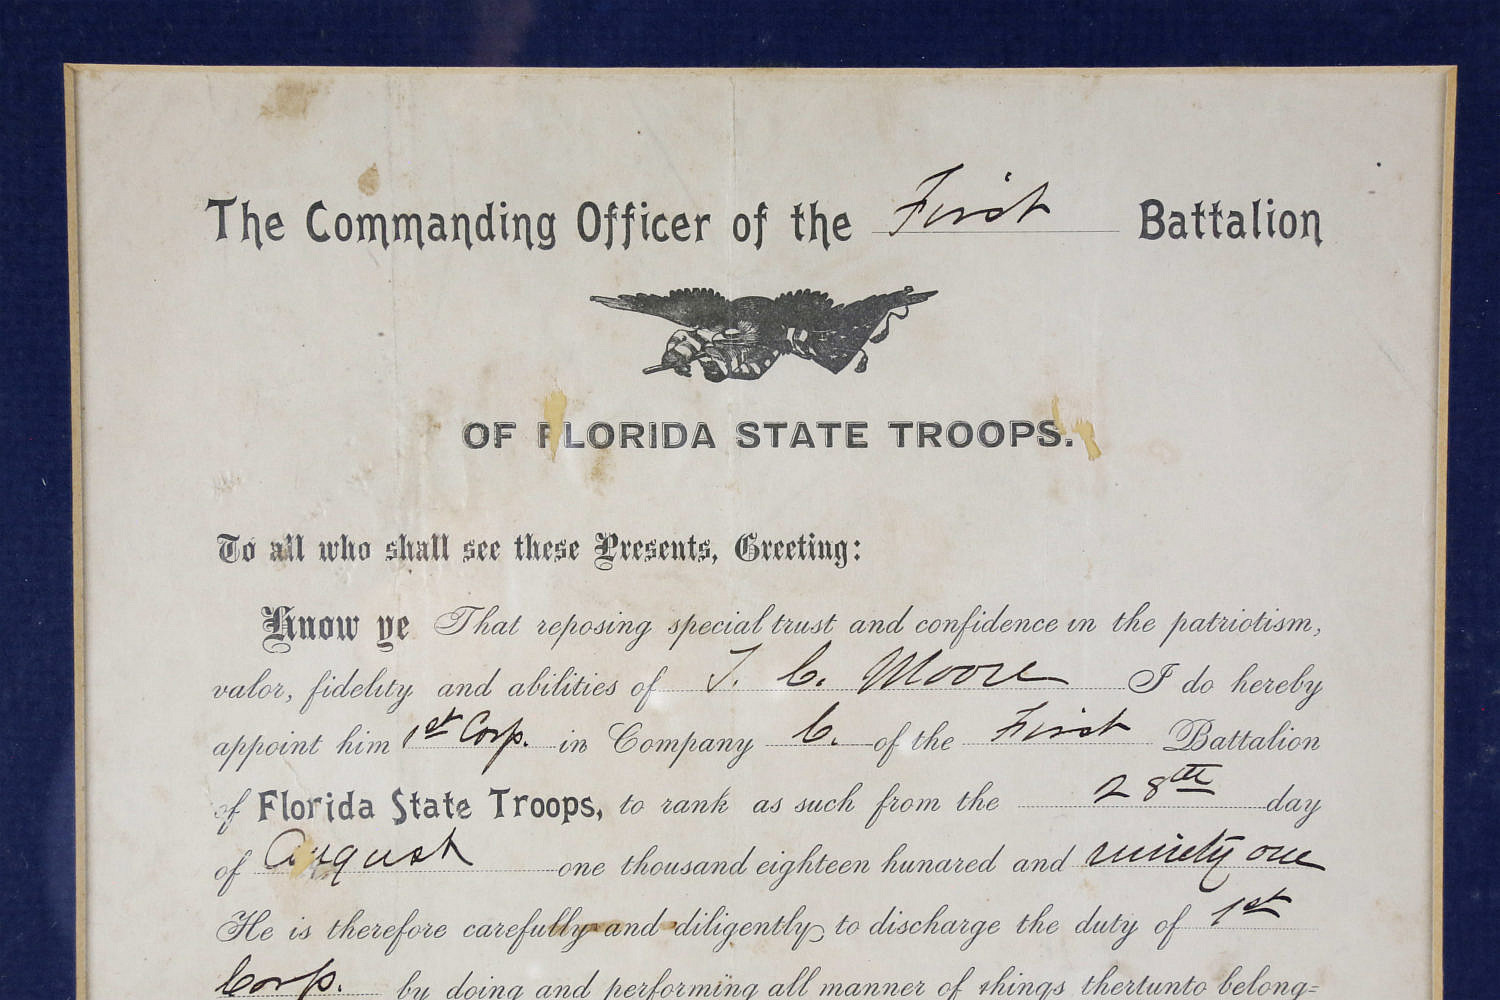 The Commanding Officer of the First Battalion
OF FLORIDA STATE TROOPS.
To all who shall see these Presents, Greeting:
Know ye That reposing special trust and confidence in the patriotism,
valor, fidelity and abilities of T. C. Moore I do hereby
appoint him 1st Corp. in Company C. of the First Battalion
of Florida State Troops, to rank as such from the 28th day
of August one thousand eighteen hundred and ninety one
He is therefore carefully and diligently to discharge the duty of 1st
Corp. by doing and performing all manner of things thertunto belong=